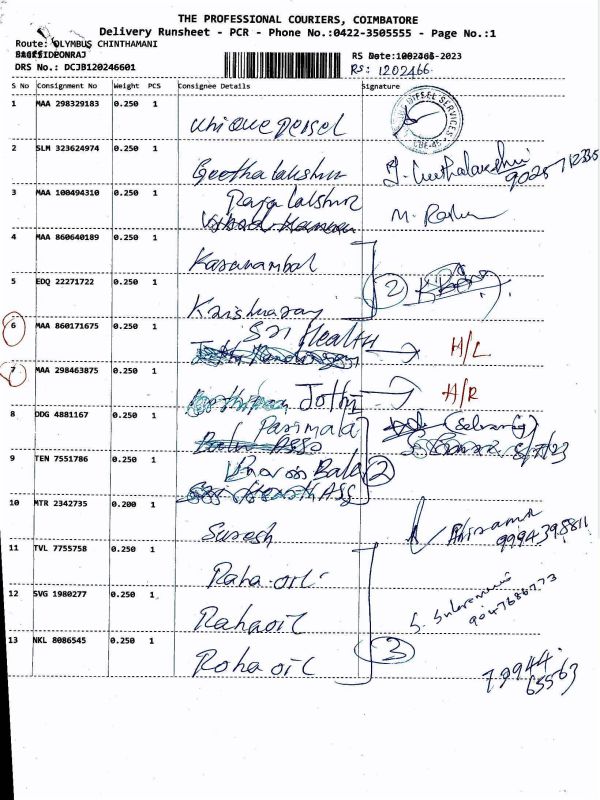 THE PROFESSIONAL COURIERS, COIMBATORE
Delivery Runsheet - PCR - Phone No.:0422-3505555 - Page No.:1
Route: OLYMBUS CHINTHAMANI
DRS No.: DCJB120246601
RS: 1202466
S No Consignment No Weight PCS Consignee Details Signature
1 MAA 298329183 0.250 1 unique diesel
DIESEL SERVICES
CBE-45
2 SLM 323624974 0.250 1 Geetha lakshmi
3 MAA 100494310 0.250 1 Raja lakshmi
4 MAA 860640189 0.250 1 Kasanambal
5 EDQ 22271722 0.250 1 Krishnaraj
2
6 MAA 860171675 0.250 1 Sri Health → H/L
7 MAA 298463875 0.250 1 Jothi → H/R
8 DDG 4881167 0.250 1 Parimala
(Selvaraj)
5/7/23
9 TEN 7551786 0.250 1 Bala
2
10 MTR 2342735 0.200 1 Suresh
9994398811
11 TVL 7755758 0.250 1 Raha-oil
12 SVG 1980277 0.250 1 Rahaoil
9047686773
13 NKL 8086545 0.250 1 Roha oil
3
79944
65563